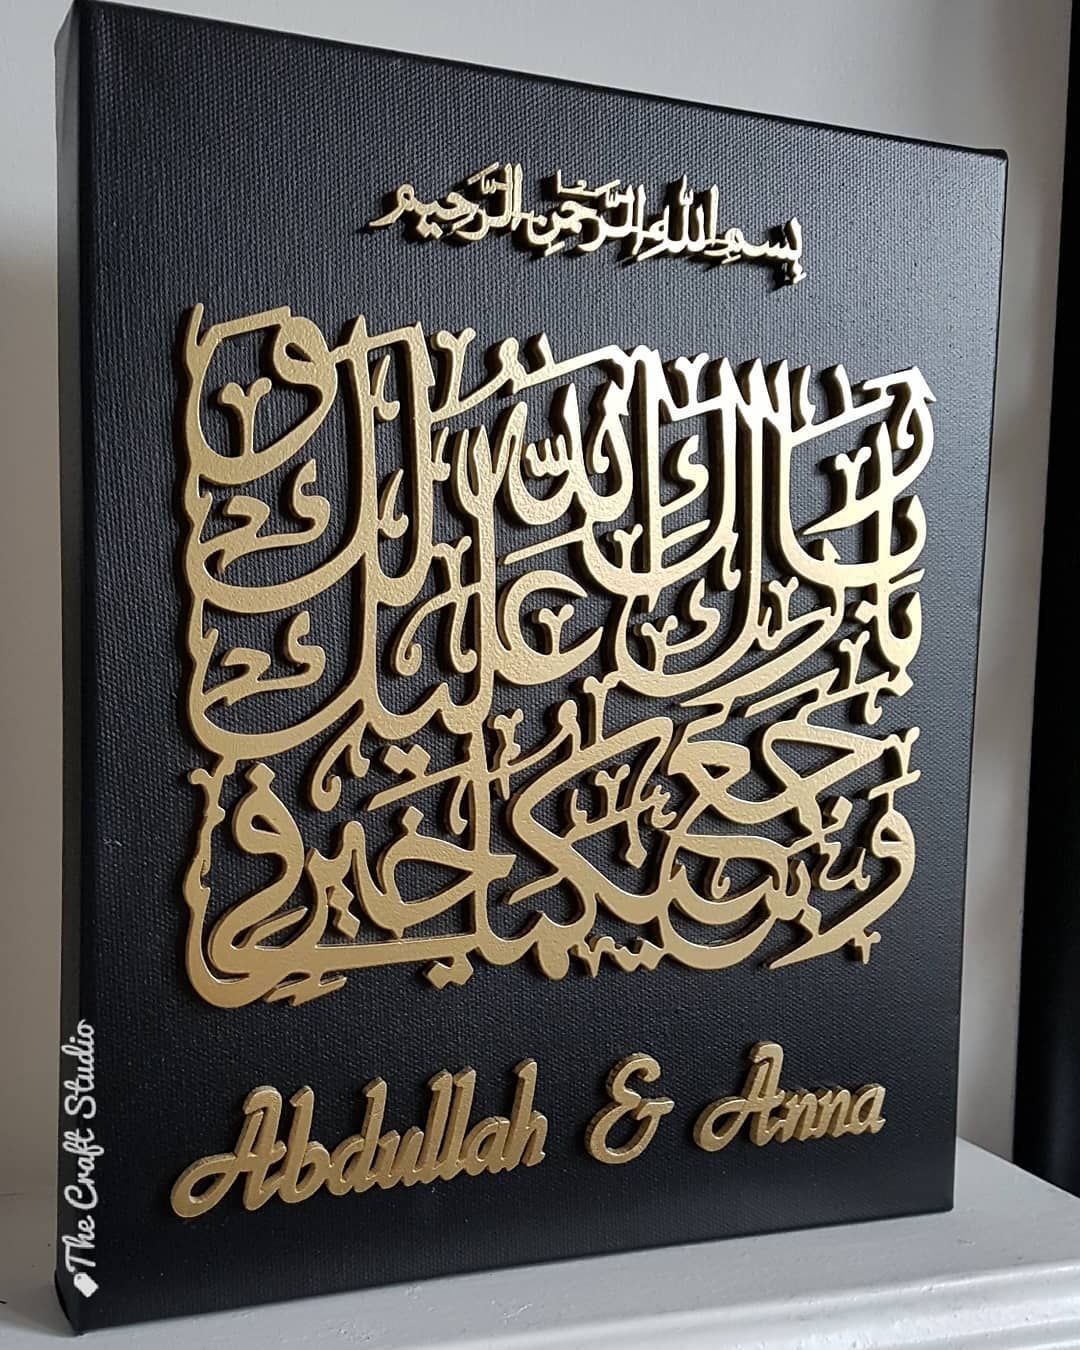 بِسْمِ اللهِ الرَّحْمٰنِ الرَّحِيْمِ
بَارَكَ اللهُ لَكَ وَ
بَارَكَ عَلَيْكَ
وَجَمَعَ بَيْنَكُمَا فِي خَيْرٍ
Abdullah & Anna
The Craft Studio